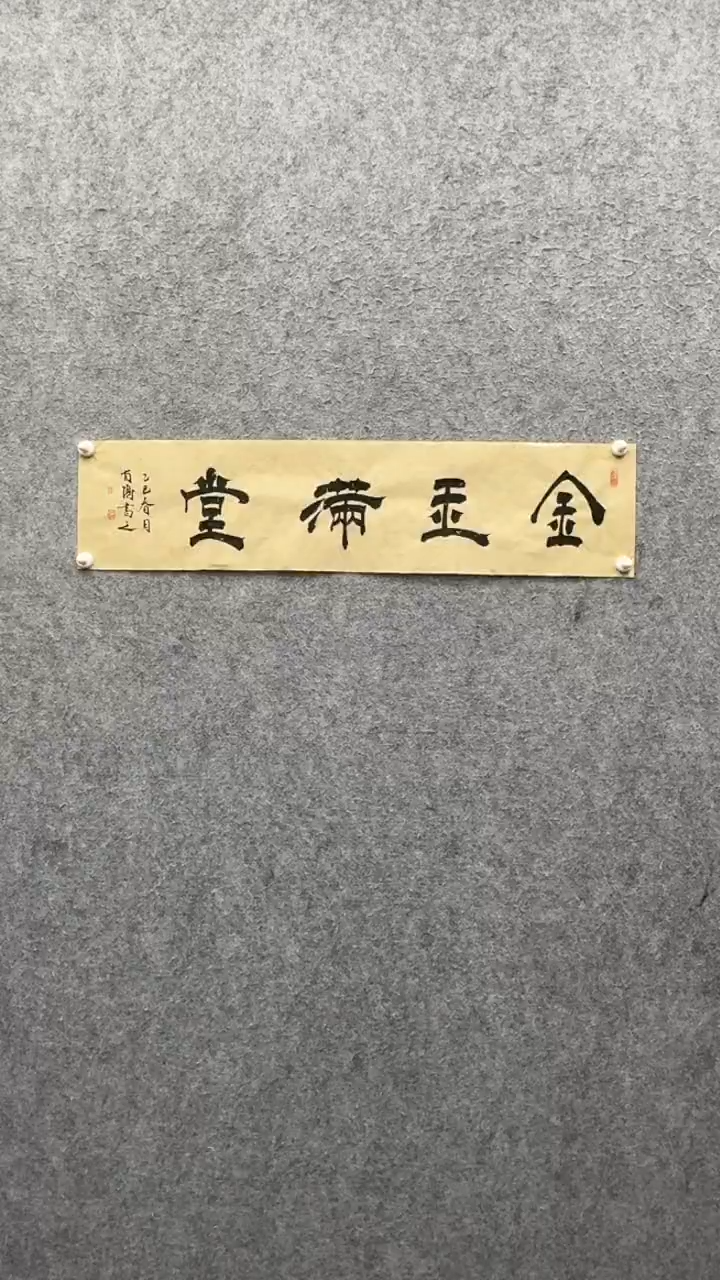 金玉滿堂
乙巳春月
書之